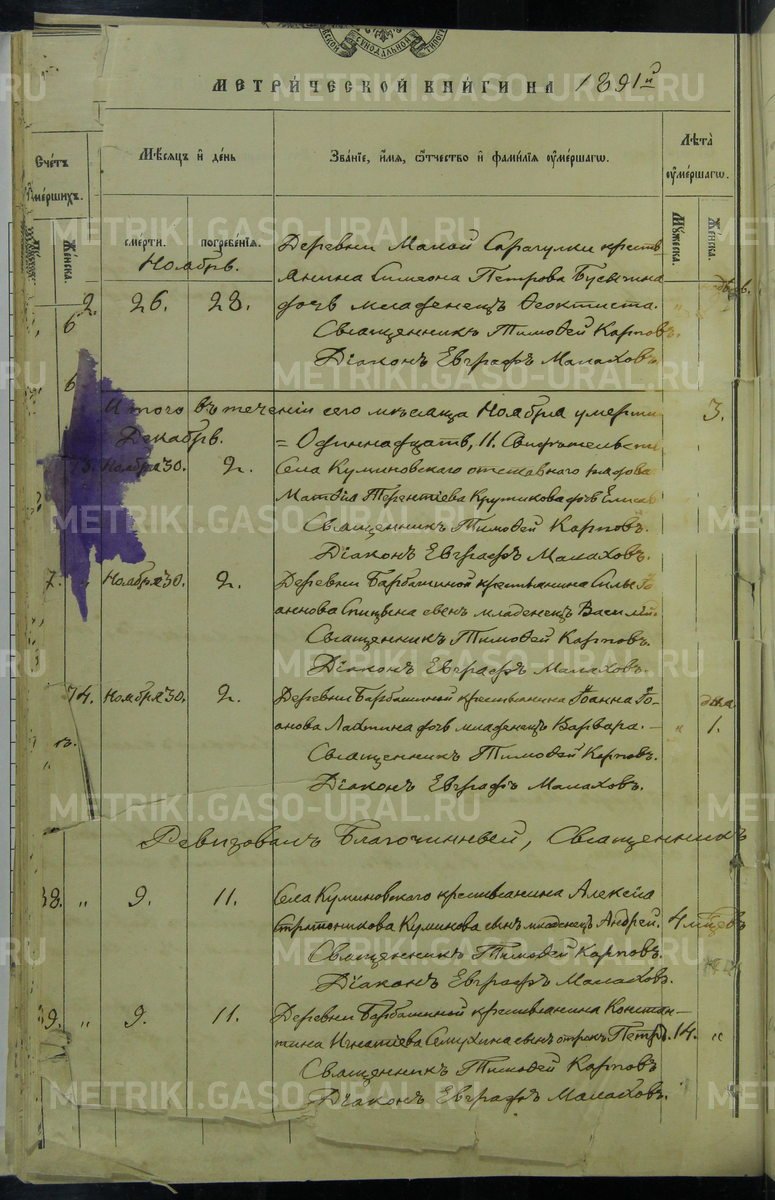 СѴНОДАЛЬНОЙ
МЕТРИ́ЧЕСКОЙ КНИ́ГИ НА 1891й
Сче́тъ оу҆ме́ршихъ.
Мѣ́сяцъ и҆ де́нь
Зва́нїе, и҆́мя, ѻ҆́тчество и҆ фами́лїя оу҆ме́ршагѡ.
Лѣ́та оу҆ме́ршагѡ.
Же́нска.
сме́рти.
погребе́нїя.
Му́жеска.
Же́нска.
Ноябрь.
Деревни Малой Сарагулки кресть
янина Симеона Петрова Бусыгина
2. 26. 28. дочь младенецъ Ѳеоктиста.
6
Священникъ Тимоѳей Карповъ.
Дїаконъ Евграфъ Малаховъ.
6
Итого въ теченіи сего мѣсяца Ноября умерш 3.
Декабрь. = Одиннадцать, 11.
73. Ноября 30. 2. Села Куминовскаго отставнаго
Матѳїа Терентіева Кружикова дочь
Священникъ Тимоѳей Карповъ.
Дїаконъ Евграфъ Малаховъ.
7. „ Ноября 30. 2. Деревни Барбашиной крестьянина Силы Їо
аннова Спицына сынъ младенецъ Василій.
Священникъ Тимоѳей Карповъ.
Дїаконъ Евграфъ Малаховъ.
74. Ноября 30. 2. Деревни Барбашиной крестьянина Їоанна Їо- дня
анова Лаптина дочь младенецъ Варвара. — „ 1.
Священникъ Тимоѳей Карповъ.
Дїаконъ Евграфъ Малаховъ.
Ревизовалъ Благочинный, Священникъ
38. „ 9. 11. Села Куминовскаго крестьянина Алексїа
Стратоникова Куминова сынъ младенецъ Андрей. 4 мѣсцевъ
Священникъ Тимоѳей Карповъ.
Дїаконъ Евграфъ Малаховъ.
39. „ 9. 11. Деревни Барбашиной крестьянина Констан-
тина Игнатіева Семухина сынъ отрокъ Петръ. 14. „
Священникъ Тимоѳей Карповъ
Дїаконъ Евграфъ Малаховъ.
METRIKI.GASO-URAL.RU